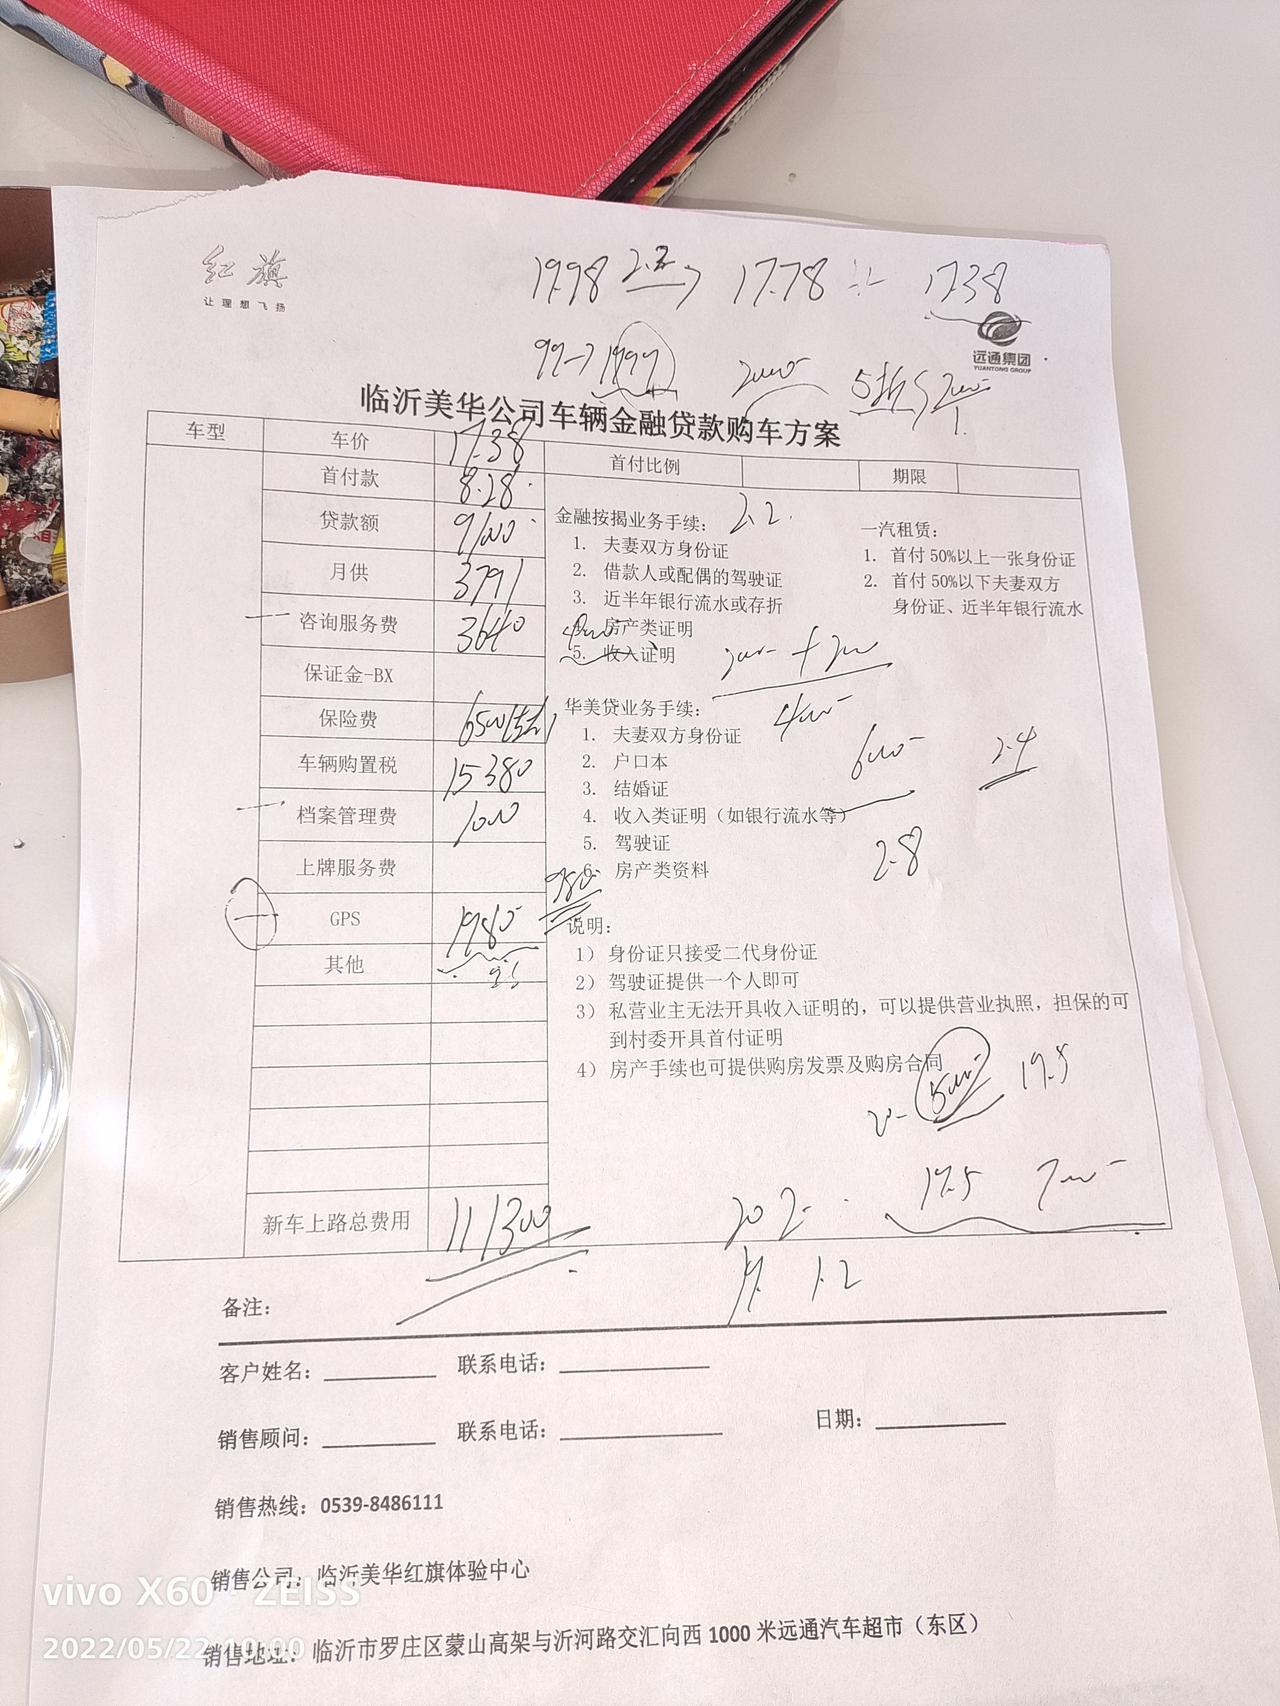 红旗
让理想飞扬
19.98 → 17.78 17.38
远通集团
YUANTONG GROUP
临沂美华公司车辆金融贷款购车方案
车型 车价 17.38 首付比例 期限
首付款 8.28
贷款额
月供 3791
咨询服务费 3640
保证金-BX
保险费 6500
车辆购置税 15380
档案管理费 1000
上牌服务费
GPS 1980
其他
新车上路总费用 111300
金融按揭业务手续: 2.2
1. 夫妻双方身份证
2. 借款人或配偶的驾驶证
3. 近半年银行流水或存折
房产类证明
5. 收入证明
一汽租赁:
1. 首付50%以上一张身份证
2. 首付50%以下夫妻双方
身份证、近半年银行流水
华美贷业务手续:
1. 夫妻双方身份证
2. 户口本
3. 结婚证
4. 收入类证明（如银行流水等）
5. 驾驶证
6. 房产类资料
2.4
2.8
说明:
1) 身份证只接受二代身份证
2) 驾驶证提供一个人即可
3) 私营业主无法开具收入证明的，可以提供营业执照，担保的可
到村委开具首付证明
4) 房产手续也可提供购房发票及购房合同
19.5
1.2
备注:
客户姓名: 联系电话:
销售顾问: 联系电话: 日期:
销售热线: 0539-8486111
销售公司: 临沂美华红旗体验中心
销售地址: 临沂市罗庄区蒙山高架与沂河路交汇向西1000米远通汽车超市（东区）
vivo X60 · ZEISS
2022/05/22 10:00